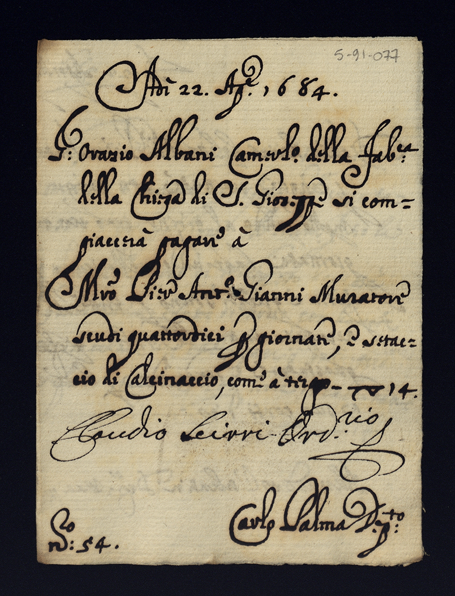 5-91-077
Adì 22. Ag.º 1684.
S.r Orazio Albani Camerl.º della Fab.ca
della Chiesa di S. Gioseppe si com=
piacerà pagare à
Mro Pier Ant.º Gianni Muratore
scudi quattordici p giornate, e setac=
cio di Calcinaccio, come à tergo - 14.
Claudio Ord.rio
Carlo Palma D.to
n.º: 54.